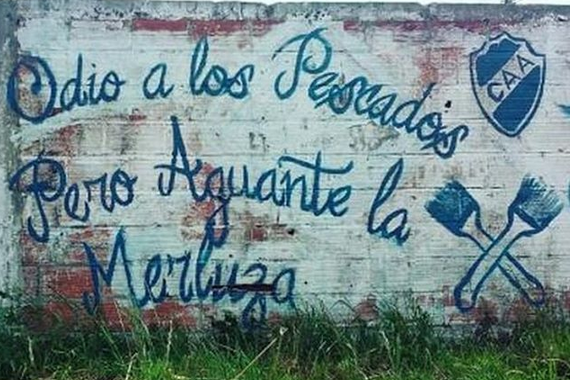 Odio a los Pescados
Pero Aguante la
Merluza
CAA